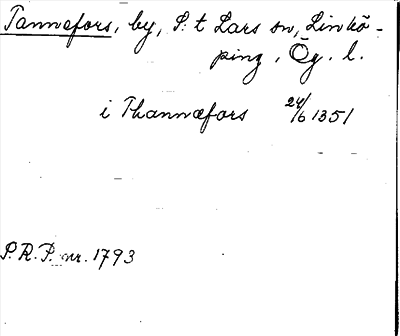 Tannefors, by, S:t Lars sn, Linkö-
ping, Ög. l.
i Thannæfors 24/6 1351
S.R.P. nr. 1793